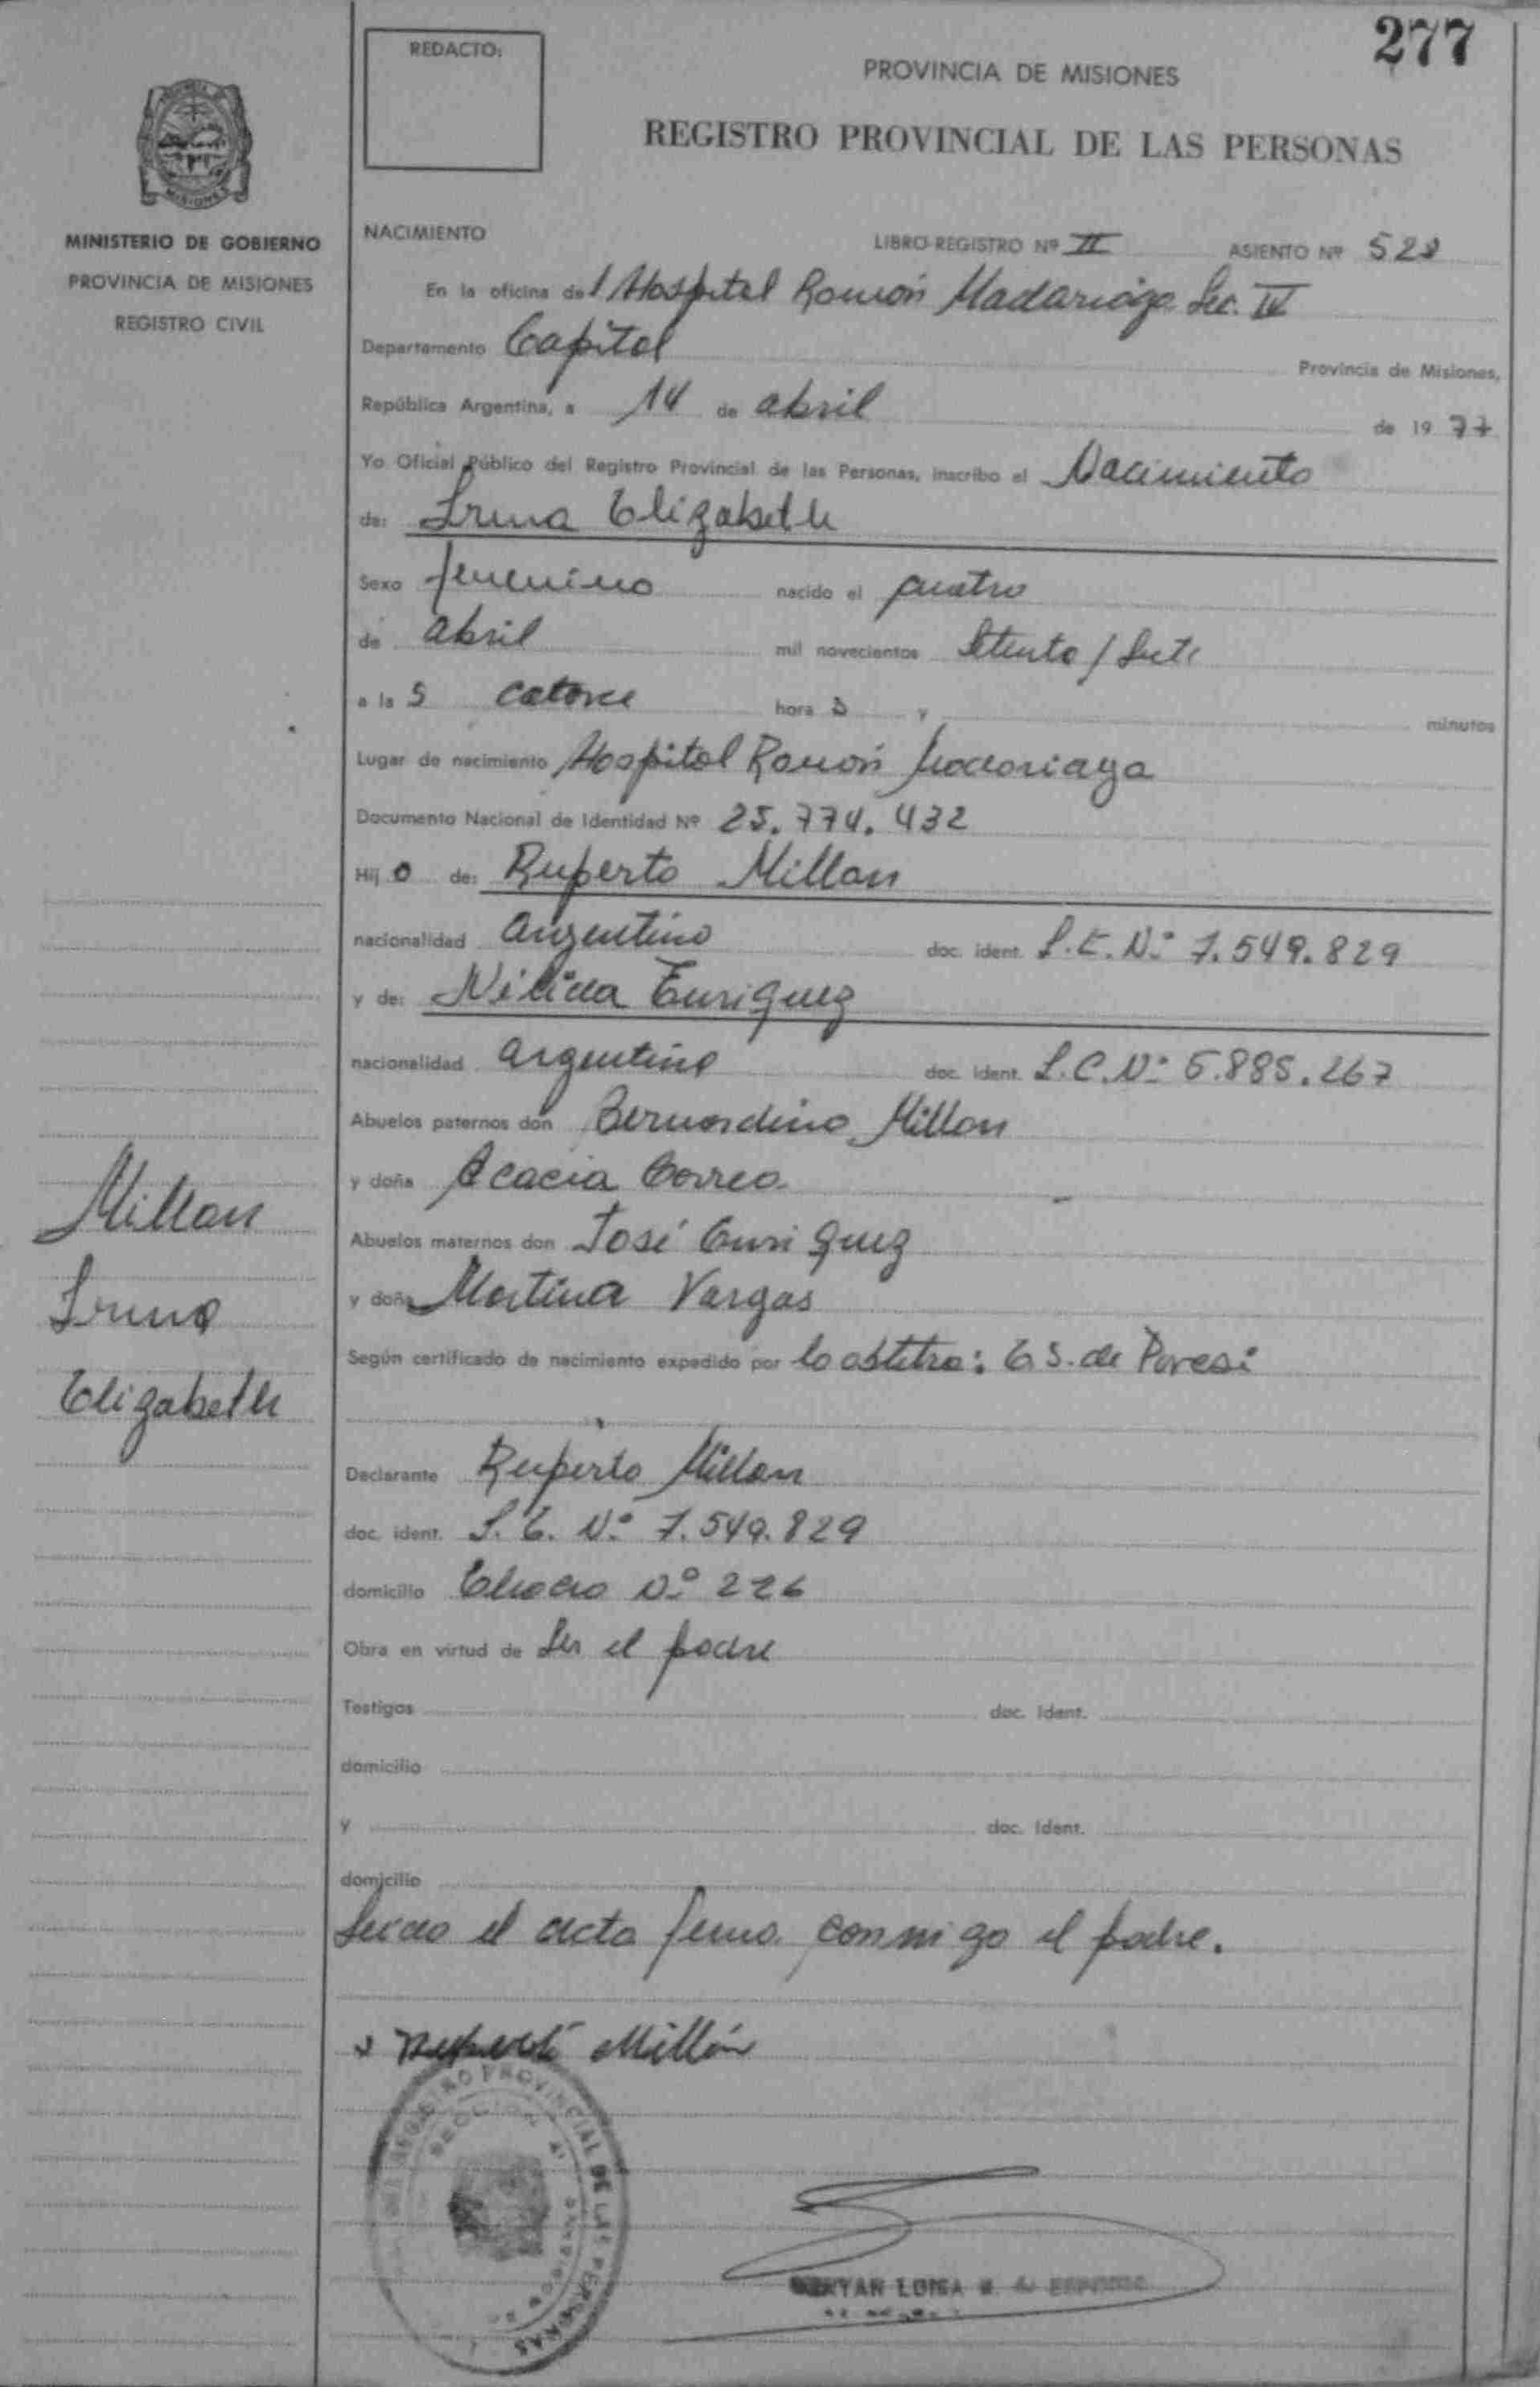 277
REDACTO:
PROVINCIA DE MISIONES
REGISTRO PROVINCIAL DE LAS PERSONAS
MISIONES
MINISTERIO DE GOBIERNO
PROVINCIA DE MISIONES
REGISTRO CIVIL
NACIMIENTO LIBRO-REGISTRO Nº II ASIENTO Nº 528
En la oficina del Hospital Ramón Madariaga Sec. IV
Departamento Capital Provincia de Misiones,
República Argentina, a 14 de abril de 1977
Yo Oficial Público del Registro Provincial de las Personas, inscribo el Nacimiento
de: Irma Elizabeth
Sexo femenino nacido el cuatro
de abril mil novecientos setenta / siete
a las catorce horas y minutos
Lugar de nacimiento Hospital Ramón Madariaga
Documento Nacional de Identidad Nº 25.774.432
Hijo de: Ruperto Millan
nacionalidad argentino doc. ident. L.E. Nº 7.549.829
y de: Nilida Enriquez
nacionalidad argentina doc. ident. L.C. Nº 5.885.267
Abuelos paternos don Bernardino Millan
y doña Acacia Correa
Abuelos maternos don José Enriquez
y doña Martina Vargas
Según certificado de nacimiento expedido por la obstetra: E.S. de Paresi
Millan
Irma
Elizabeth
Declarante Ruperto Millan
doc. ident. L.E. Nº 7.549.829
domicilio Nº 226
Obra en virtud de ser el padre
Testigos doc. ident.
domicilio
y doc. ident.
domicilio
el acta firma conmigo el padre.
Millán
REGISTRO PROVINCIAL DE LAS PERSONAS
SECCION
LUISA